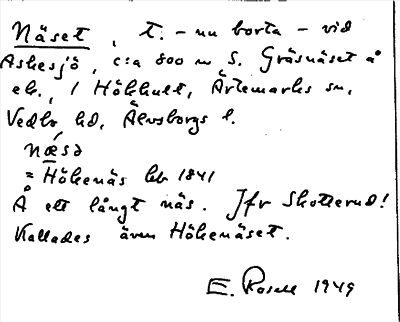 Näset, t. - nu borta - vid
Askesjö, c:a 800 m S. Gräsnäset å
ek., / Hökhult, Ärtemarks sn,
Vedbo hd, Älvsborgs l.
næ̀sə
= Hökenäs hb 1841
Å ett långt näs. Jfr Skotterud!
Kallades även Hökenäset.
E. Rosell 1949